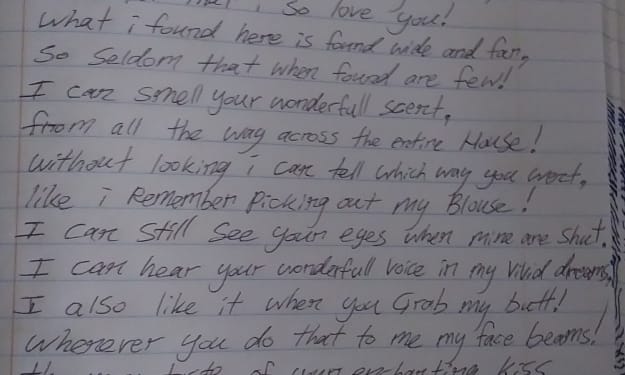 So love you!
what i found here is found wide and far,
So Seldom that when found are few!
I can smell your wonderfull scent,
from all the way across the entire House!
without looking i can tell which way you went,
like i Remember Picking out my Blouse!
I can Still See your eyes when mine are Shut.
I can hear your wonderfull voice in my vivid dreams,
I also like it when you Grab my butt!
whenever you do that to me my face beams!
of your enchanting Kiss